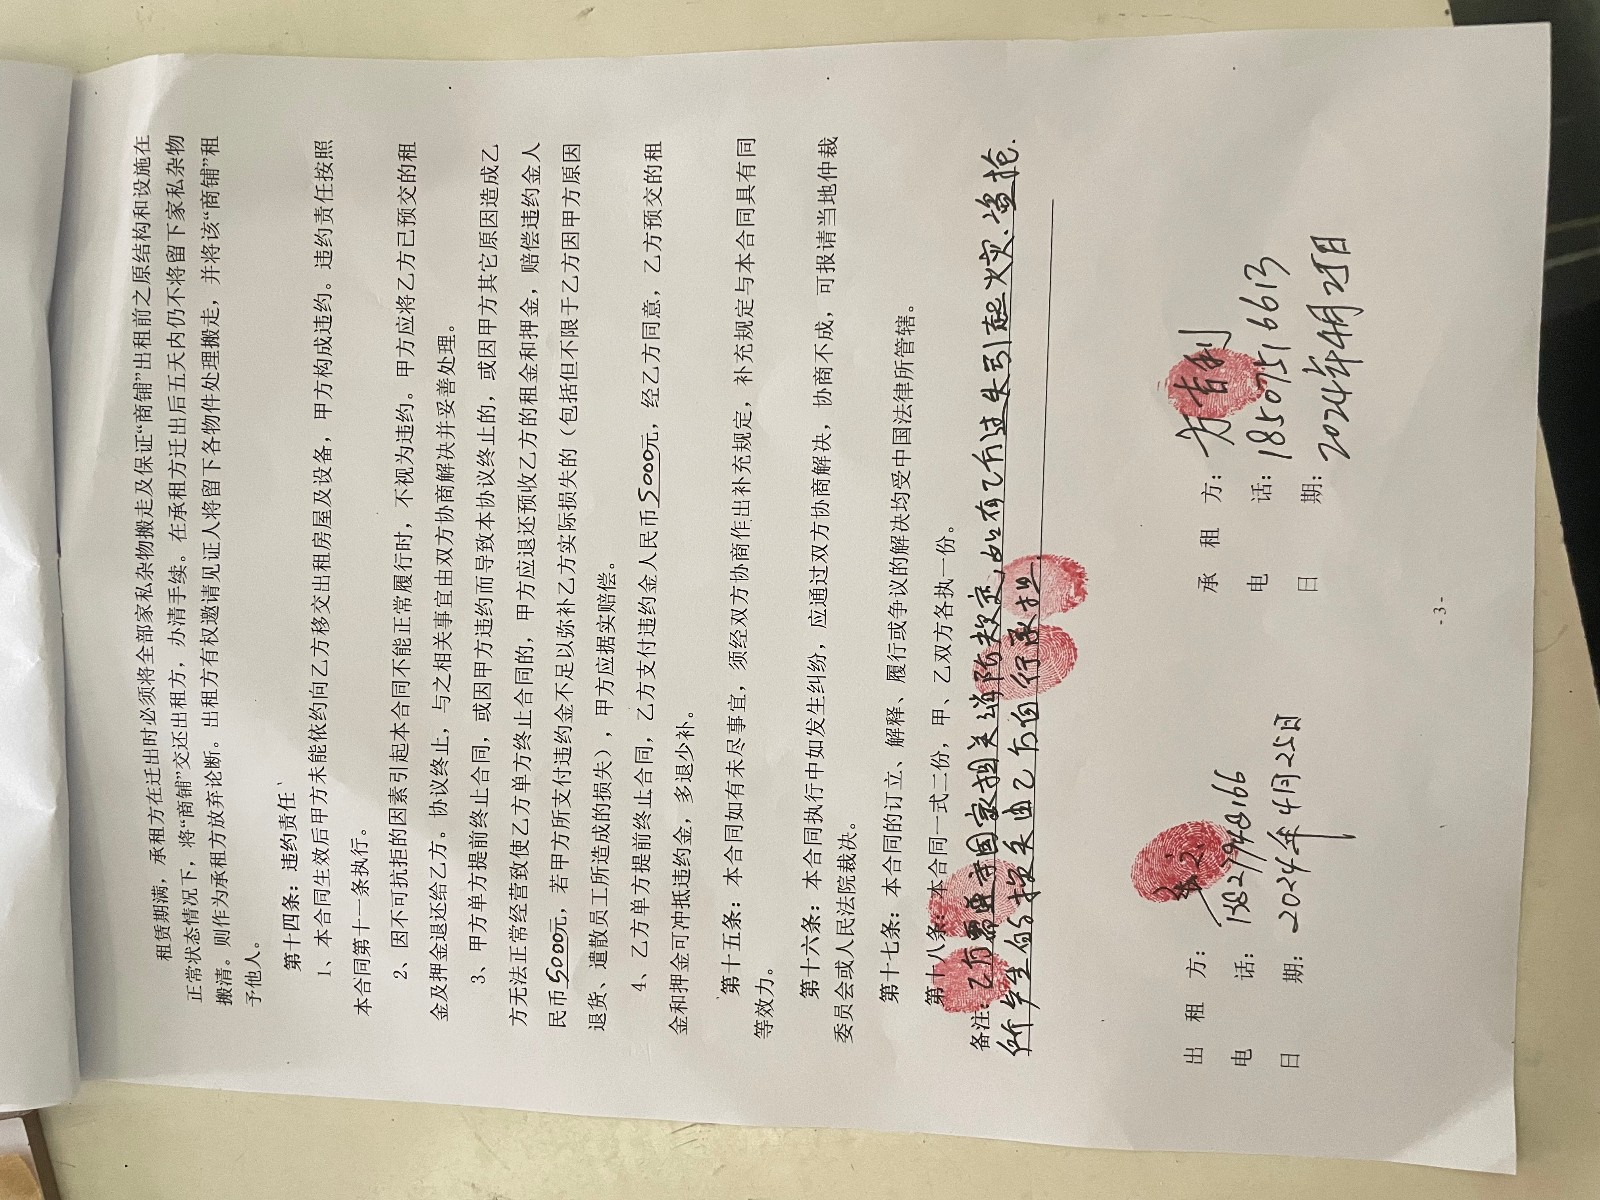 租赁期满，承租方在迁出时必须将全部家私杂物搬走及保证“商铺”出租前之原结构和设施在
正常状态情况下，将“商铺”交还出租方，办清手续。在承租方迁出后五天内仍不将留下家私杂物
搬清。则作为承租方放弃论断。出租方有权邀请见证人将留下各物件处理搬走，并将该“商铺”租
予他人。
第十四条：违约责任
1、本合同生效后甲方未能依约向乙方移交出租房屋及设备，甲方构成违约。违约责任按照
本合同第十一条执行。
2、因不可抗拒的因素引起本合同不能正常履行时，不视为违约。甲方应将乙方已预交的租
金及押金退还给乙方。协议终止，与之相关事宜由双方协商解决并妥善处理。
3、甲方单方提前终止合同，或因甲方违约而导致本协议终止的，或因甲方其它原因造成乙
方无法正常经营致使乙方单方终止合同的，甲方应退还预收乙方的租金和押金，赔偿违约金人
民币5000元，若甲方所支付违约金不足以弥补乙方实际损失的（包括但不限于乙方因甲方原因
退货、遣散员工所造成的损失），甲方应据实赔偿。
4、乙方单方提前终止合同，乙方支付违约金人民币5000元，经乙方同意，乙方预交的租
金和押金可冲抵违约金，多退少补。
第十五条：本合同如有未尽事宜，须经双方协商作出补充规定，补充规定与本合同具有同
等效力。
第十六条：本合同执行中如发生纠纷，应通过双方协商解决，协商不成，可报请当地仲裁
委员会或人民法院裁决。
第十七条：本合同的订立、解释、履行或争议的解决均受中国法律所管辖。
第十八条：本合同一式二份，甲、乙双方各执一份。
备注：乙方需要国家相关消防规定，如有乙方过失引起火灾.盗抢.
所产生的损失由乙方自行承担
出 租 方：
电 话：13827948166
日 期：2024年4月25日
承 租 方：方吉利
电 话：18507516613
日 期：2024年4月25日
-3-